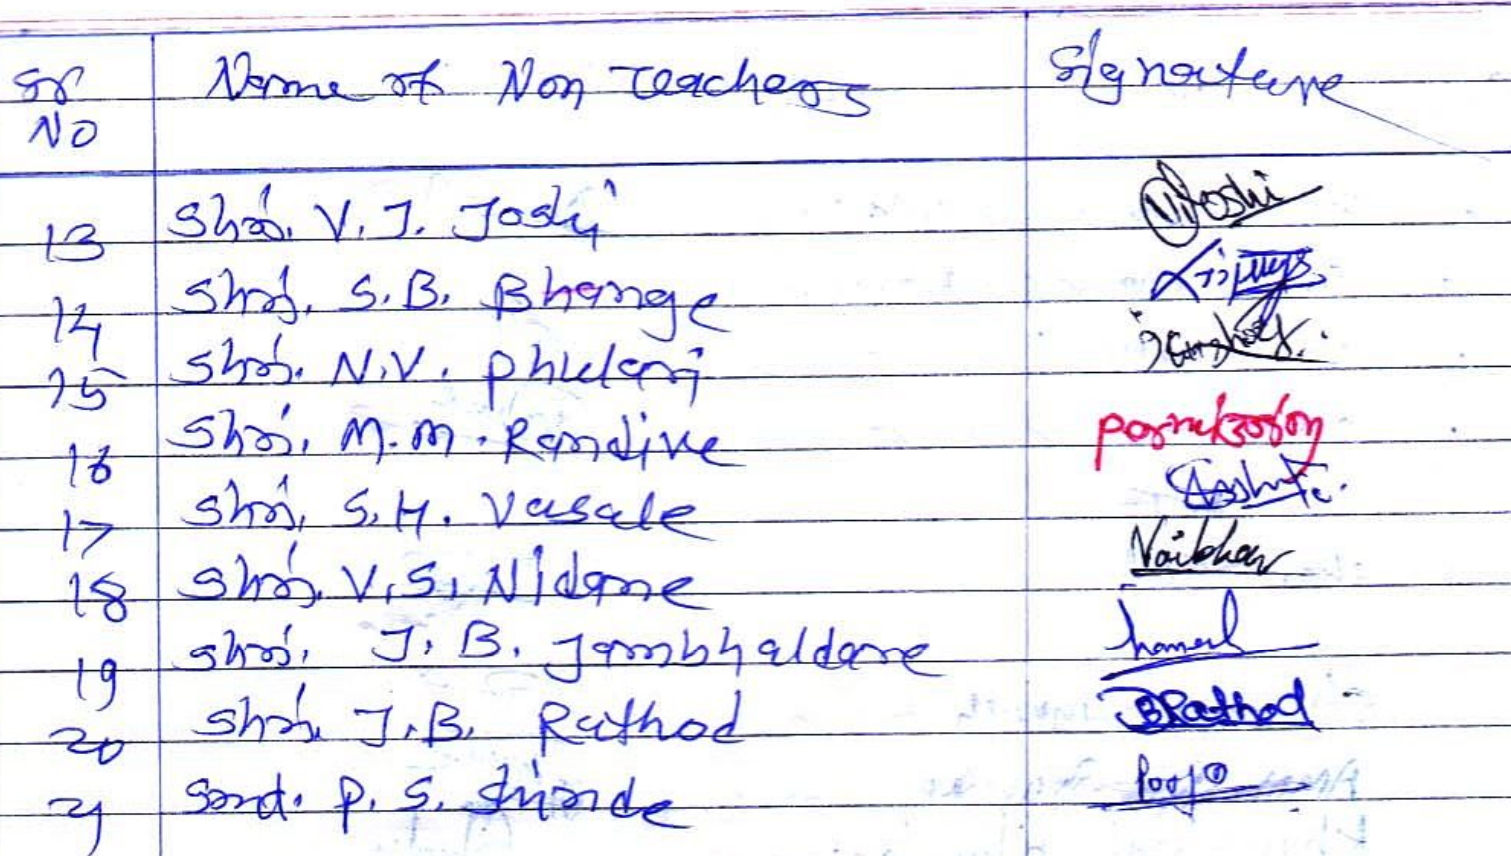 Sr No Name of Non Teachers Signature
13 Shri. V. J. Joshi VJJoshi
14 Shri. S.B. Bhange
15 Shri. N.V. Phulari
16 Shri. M.M. Randive
17 Shri. S.H. Vasale
18 Shri. V.S. Nidane Vaibhav
19 Shri. J. B. Jambhaldare
20 Shri. J.B. Rathod JBRathod
21 Smt. P. S. Shinde Pooja